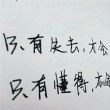 只有失去,才会
只有懂得,才会